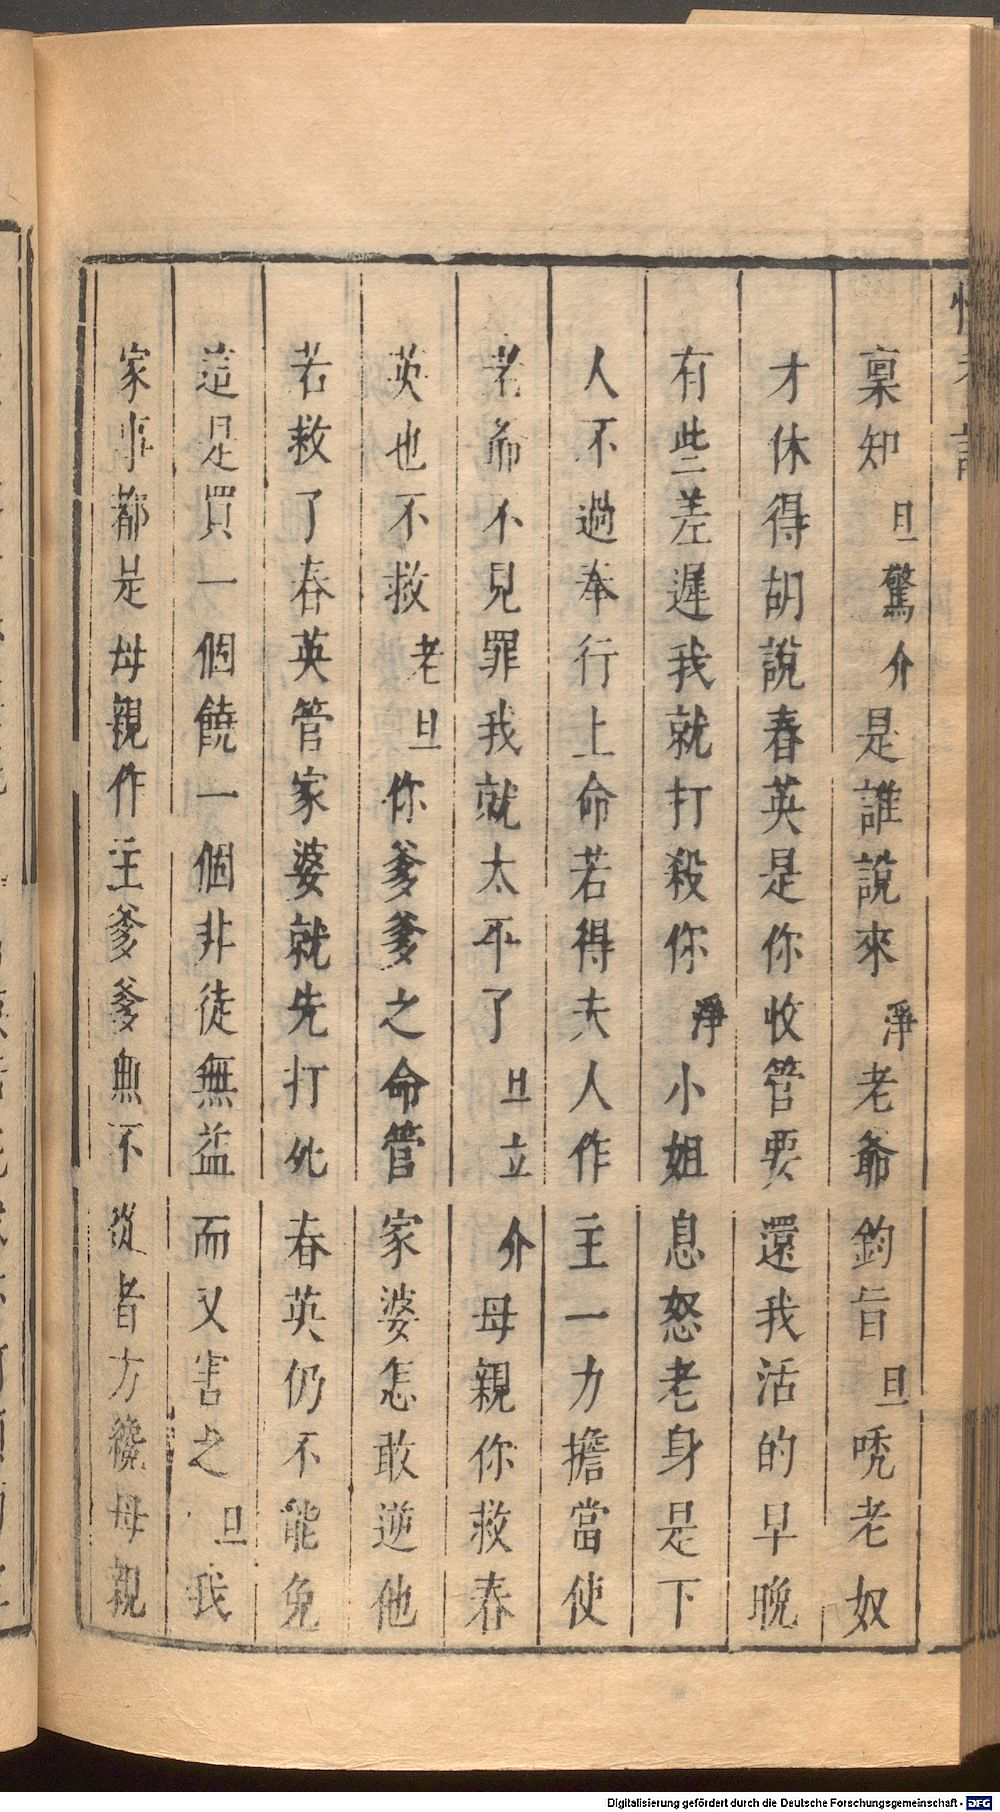 稟知旦驚介是誰說來淨老爺鈞旨旦唗老奴
才休得胡說春英是你收管要還我活的早晚
有些差遲我就打殺你淨小姐息怒老身是下
人不過奉行上命若得夫人作主一力擔當使
老爺不見罪我就太平了旦立介母親你救春
英也不救老旦你爹爹之命管家婆怎敢逆他
若救了春英管家婆就先打死春英仍不能免
這是買一個饒一個非徒無益而又害之旦我
家事都是母親作主爹爹無不從者方纔母親
Digitalisierung gefördert durch die Deutsche Forschungsgemeinschaft - DFG